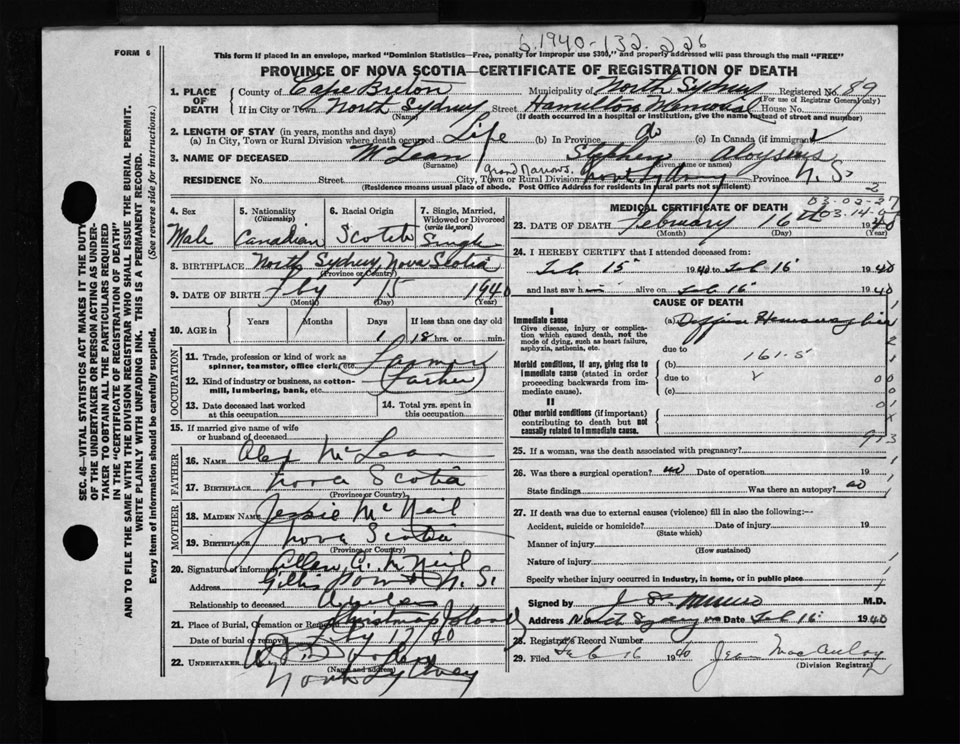 6.1940-132226
FORM 6
This form if placed in an envelope, marked "Dominion Statistics—Free, penalty for improper use $300," and properly addressed will pass through the mail "FREE"
PROVINCE OF NOVA SCOTIA—CERTIFICATE OF REGISTRATION OF DEATH
SEC. 46—VITAL STATISTICS ACT MAKES IT THE DUTY
OF THE UNDERTAKER OR PERSON ACTING AS UNDER-
TAKER TO OBTAIN ALL THE PARTICULARS REQUIRED
IN THE "CERTIFICATE OF REGISTRATION OF DEATH"
AND TO FILE THE SAME WITH THE DIVISION REGISTRAR WHO SHALL ISSUE THE BURIAL PERMIT.
WRITE PLAINLY WITH UNFADING INK. THIS IS A PERMANENT RECORD.
Every item of information should be carefully supplied. (See reverse side for instructions.)
1. PLACE OF DEATH County of Cape Breton Municipality of North Sydney Registered No. 89
(For use of Registrar General only)
If in City or Town North Sydney Street Hamilton Memorial House No.
(Name) (If death occurred in a hospital or institution, give the name instead of street and number)
2. LENGTH OF STAY (in years, months and days)
(a) In City, Town or Rural Division where death occurred Life (b) In Province do (c) In Canada (if immigrant)
3. NAME OF DECEASED McLean Stephen Aloysius
(Surname) (Given name or names)
Grand Narrows
RESIDENCE No. Street City, Town or Rural Division North Sydney Province N. S.
(Residence means usual place of abode. Post Office Address for residents in rural parts not sufficient)
4. Sex Male
5. Nationality (Citizenship) Canadian
6. Racial Origin Scotch
7. Single, Married, Widowed or Divorced (write the word) Single
8. BIRTHPLACE North Sydney, Nova Scotia
(Province or Country)
9. DATE OF BIRTH Fby 15 1940
(Month) (Day) (Year)
10. AGE in Years Months Days 1 If less than one day old 18 hrs. or min.
OCCUPATION
11. Trade, profession or kind of work as spinner, teamster, office clerk, etc. Farmer
12. Kind of industry or business, as cotton-mill, lumbering, bank, etc. (Father)
13. Date deceased last worked at this occupation
14. Total yrs. spent in this occupation
15. If married give name of wife or husband of deceased
FATHER
16. NAME Alex McLean
17. BIRTHPLACE Nova Scotia
(Province or Country)
MOTHER
18. MAIDEN NAME Jessie McNeil
19. BIRTHPLACE Nova Scotia
(Province or Country)
20. Signature of informant Allan C. McNeil
Address Gillis Point N. S.
Relationship to deceased Uncle
21. Place of Burial, Cremation or Removal Christmas Island
Date of burial or removal Fby 17/40
22. UNDERTAKER
(Name and address)
North Sydney
03-02-27
MEDICAL CERTIFICATE OF DEATH
23. DATE OF DEATH February 16th 1940
(Month) (Day) (Year)
24. I HEREBY CERTIFY that I attended deceased from:
Feb 15 1940 to Feb 16 1940
and last saw h alive on Feb 16 1940
CAUSE OF DEATH
I
Immediate cause (a)
Give disease, injury or complication which caused death, not the mode of dying, such as heart failure, asphyxia, asthenia, etc.
due to
161-5
Morbid conditions, if any, giving rise to immediate cause (stated in order proceeding backwards from immediate cause). (b)
due to
(c)
II
Other morbid conditions (if important) contributing to death but not causally related to immediate cause.
25. If a woman, was the death associated with pregnancy?
26. Was there a surgical operation? no Date of operation 19
State findings Was there an autopsy? no
27. If death was due to external causes (violence) fill in also the following:—
Accident, suicide or homicide? Date of injury 19
(State which)
Manner of injury
(How sustained)
Nature of injury
Specify whether injury occurred in industry, in home, or in public place
Signed by M.D.
Address North Sydney NS Date Feb 16 1940
28. Registrar's Record Number
29. Filed Feb 16 1940 Jean MacAulay
(Division Registrar)